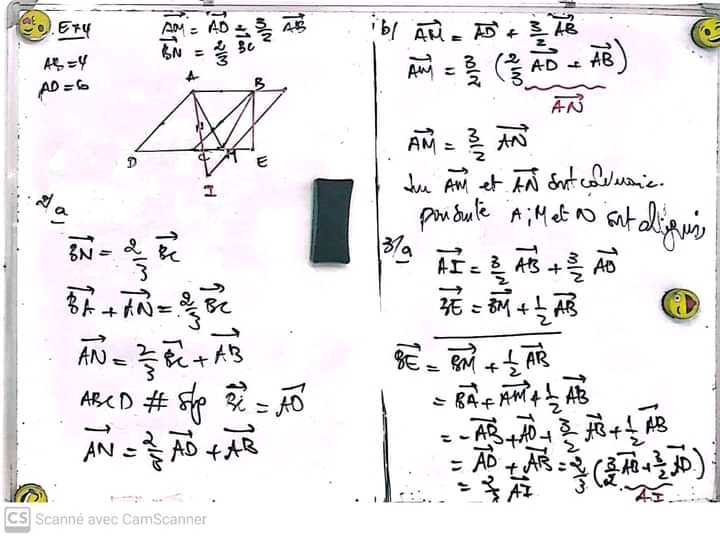 Ex4
AB = 4
AD = 6
AM = AD + 3/2 AB
BN = 2/3 BC
A
B
D
C
M
E
I
2/a
BN = 2/3 BC
BA + AN = 2/3 BC
AN = 2/3 BC + AB
ABCD # BC = AD
AN = 2/3 AD + AB
b/ AM = AD + 3/2 AB
AM = 3/2 (2/3 AD + AB)
AN
AM = 3/2 AN
AM et AN sont
A ; M et N sont
3/a
AI = 3/2 AB + 3/2 AD
BE = BM + 1/2 AB
BE = BM + 1/2 AB
= BA + AM + 1/2 AB
= -AB + AD + 3/2 AB + 1/2 AB
= AD + AB = 2/3 (3/2 AB + 3/2 AD)
= 2/3 AI
AI
CS Scanné avec CamScanner